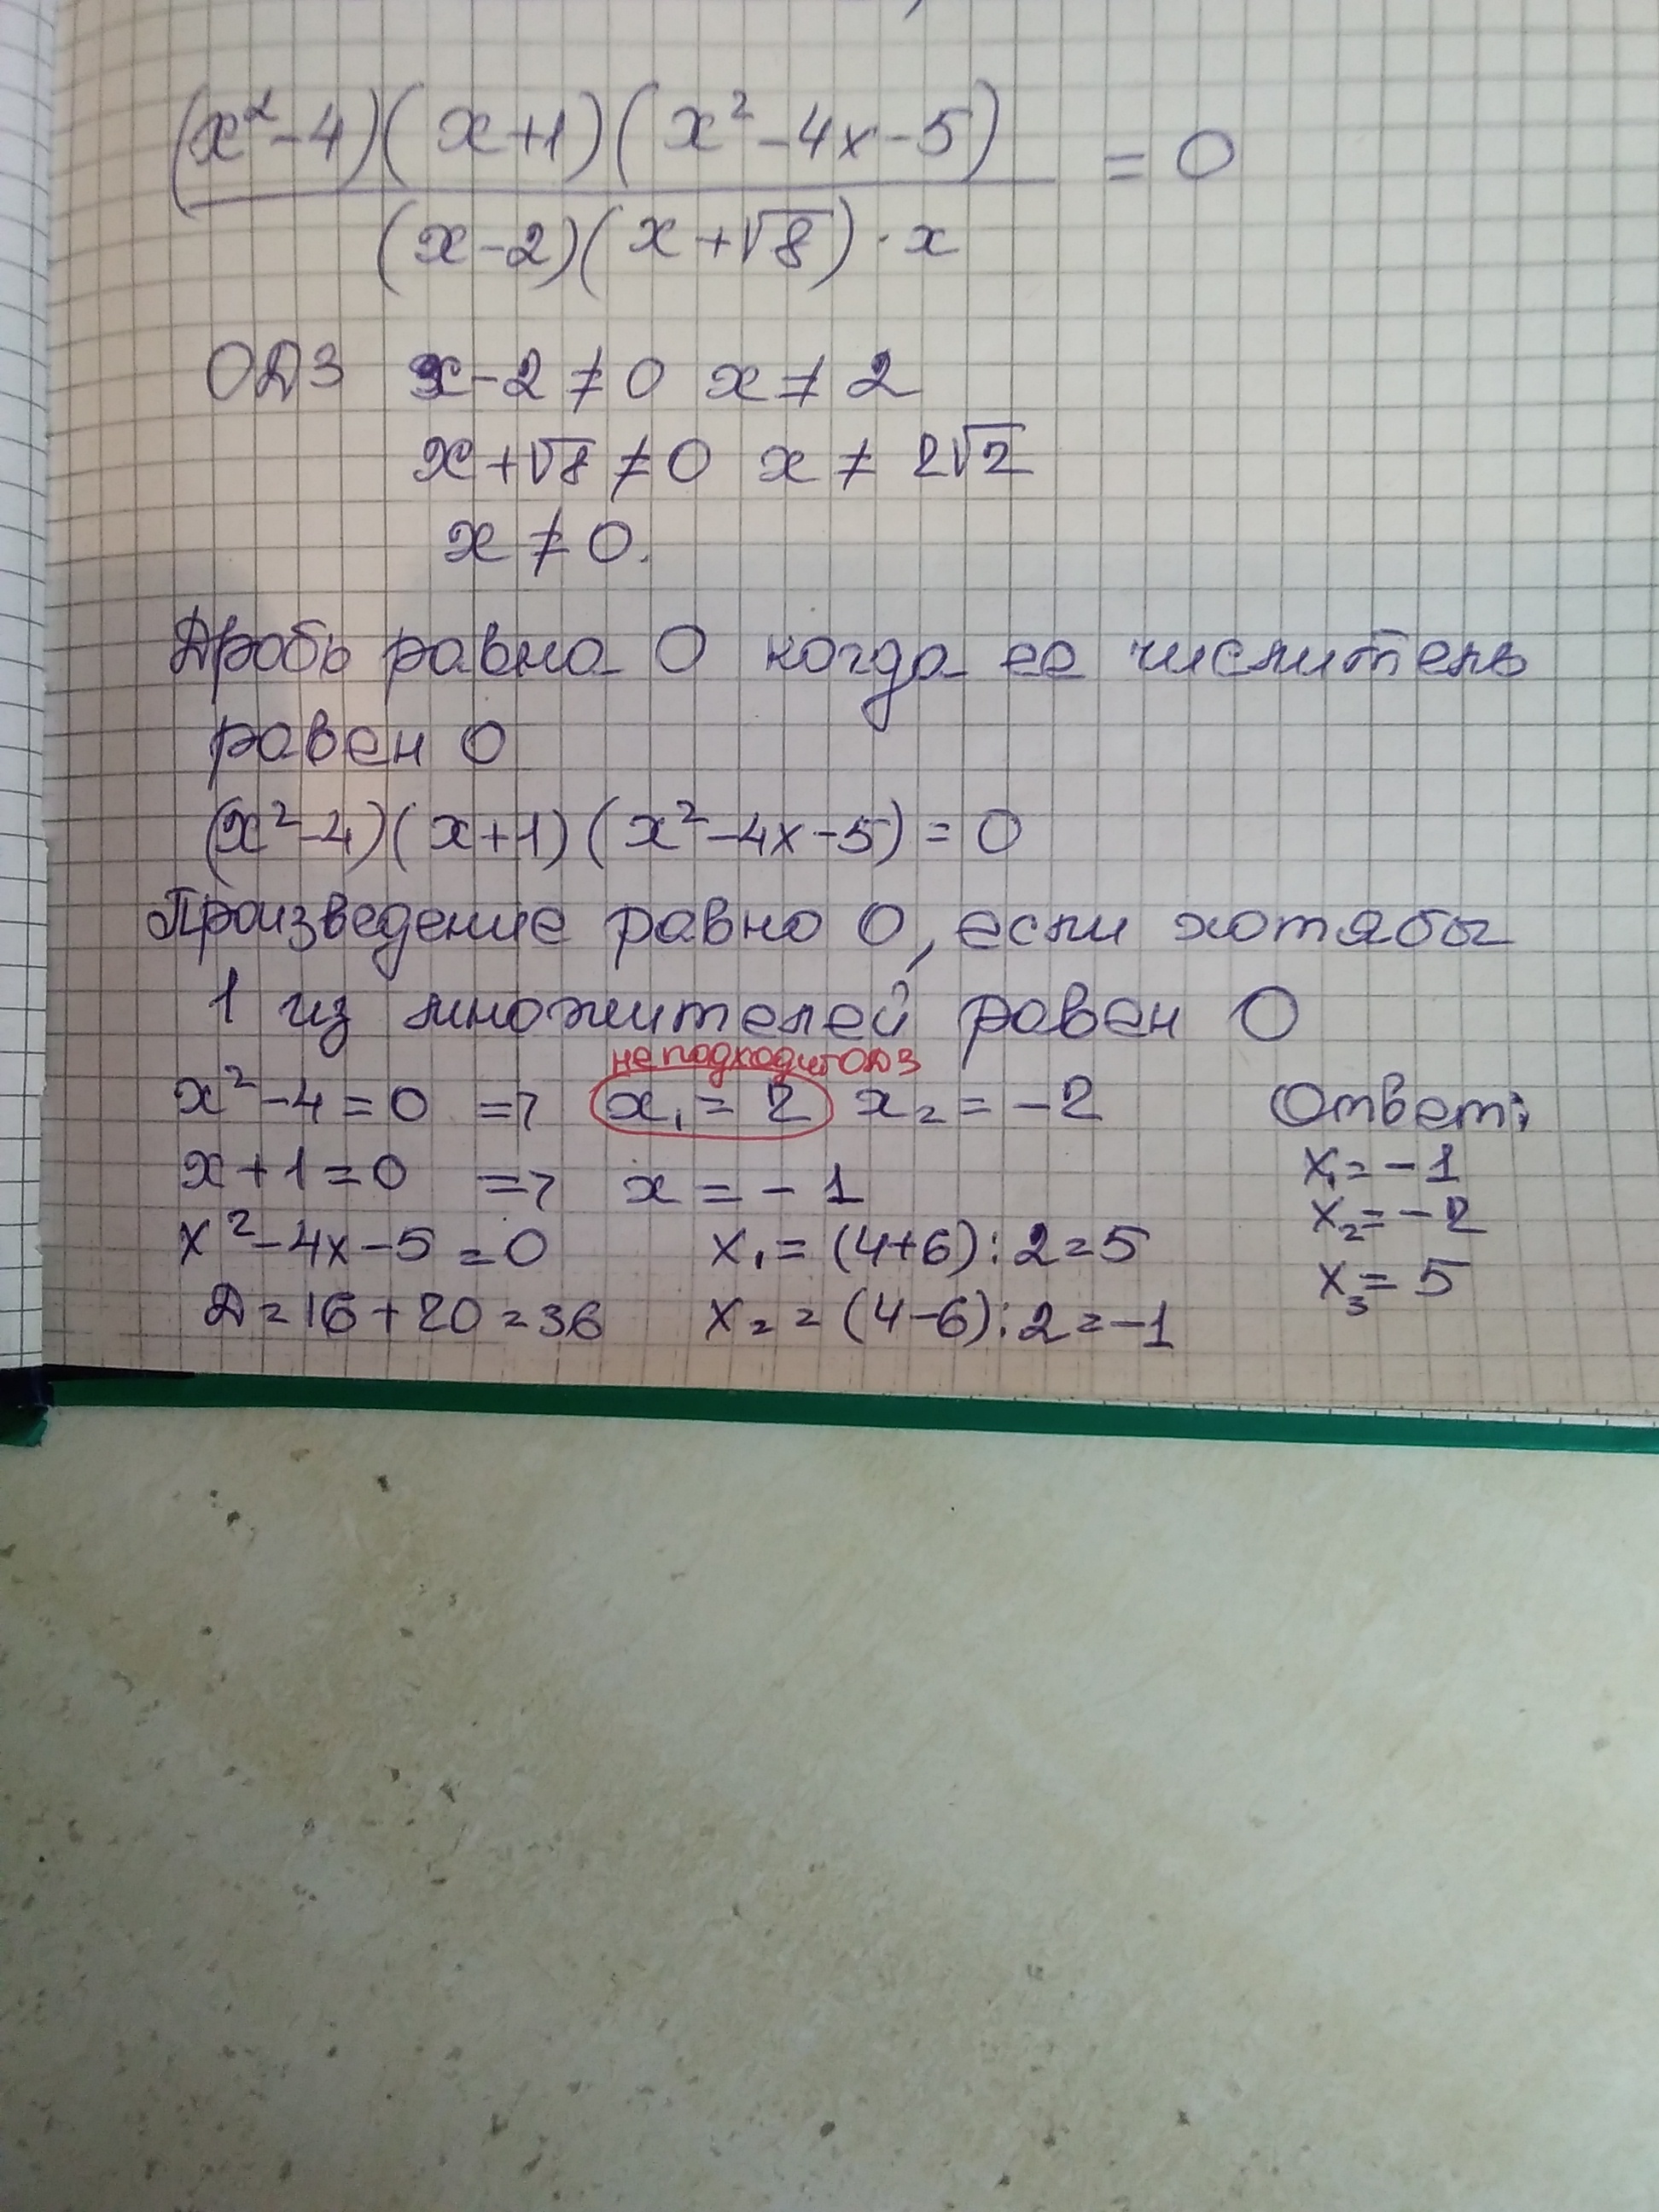 (x²-4)(x+1)(x²-4x-5) = 0
(x-2)(x+√8)·x
ОДЗ x-2≠0 x≠2
x+√8≠0 x≠2√2
x≠0.
Дробь равна 0 когда ее числитель
равен 0
(x²-4)(x+1)(x²-4x-5)=0
Произведение равно 0, если хотябы
1 из множителей равен 0
не подходит ОДЗ
x²-4=0 => x₁=2 x₂=-2
x+1=0 => x=-1
x²-4x-5=0 x₁=(4+6):2=5
D=16+20=36 x₂=(4-6):2=-1
Ответ:
x₁=-1
x₂=-2
x₃=5